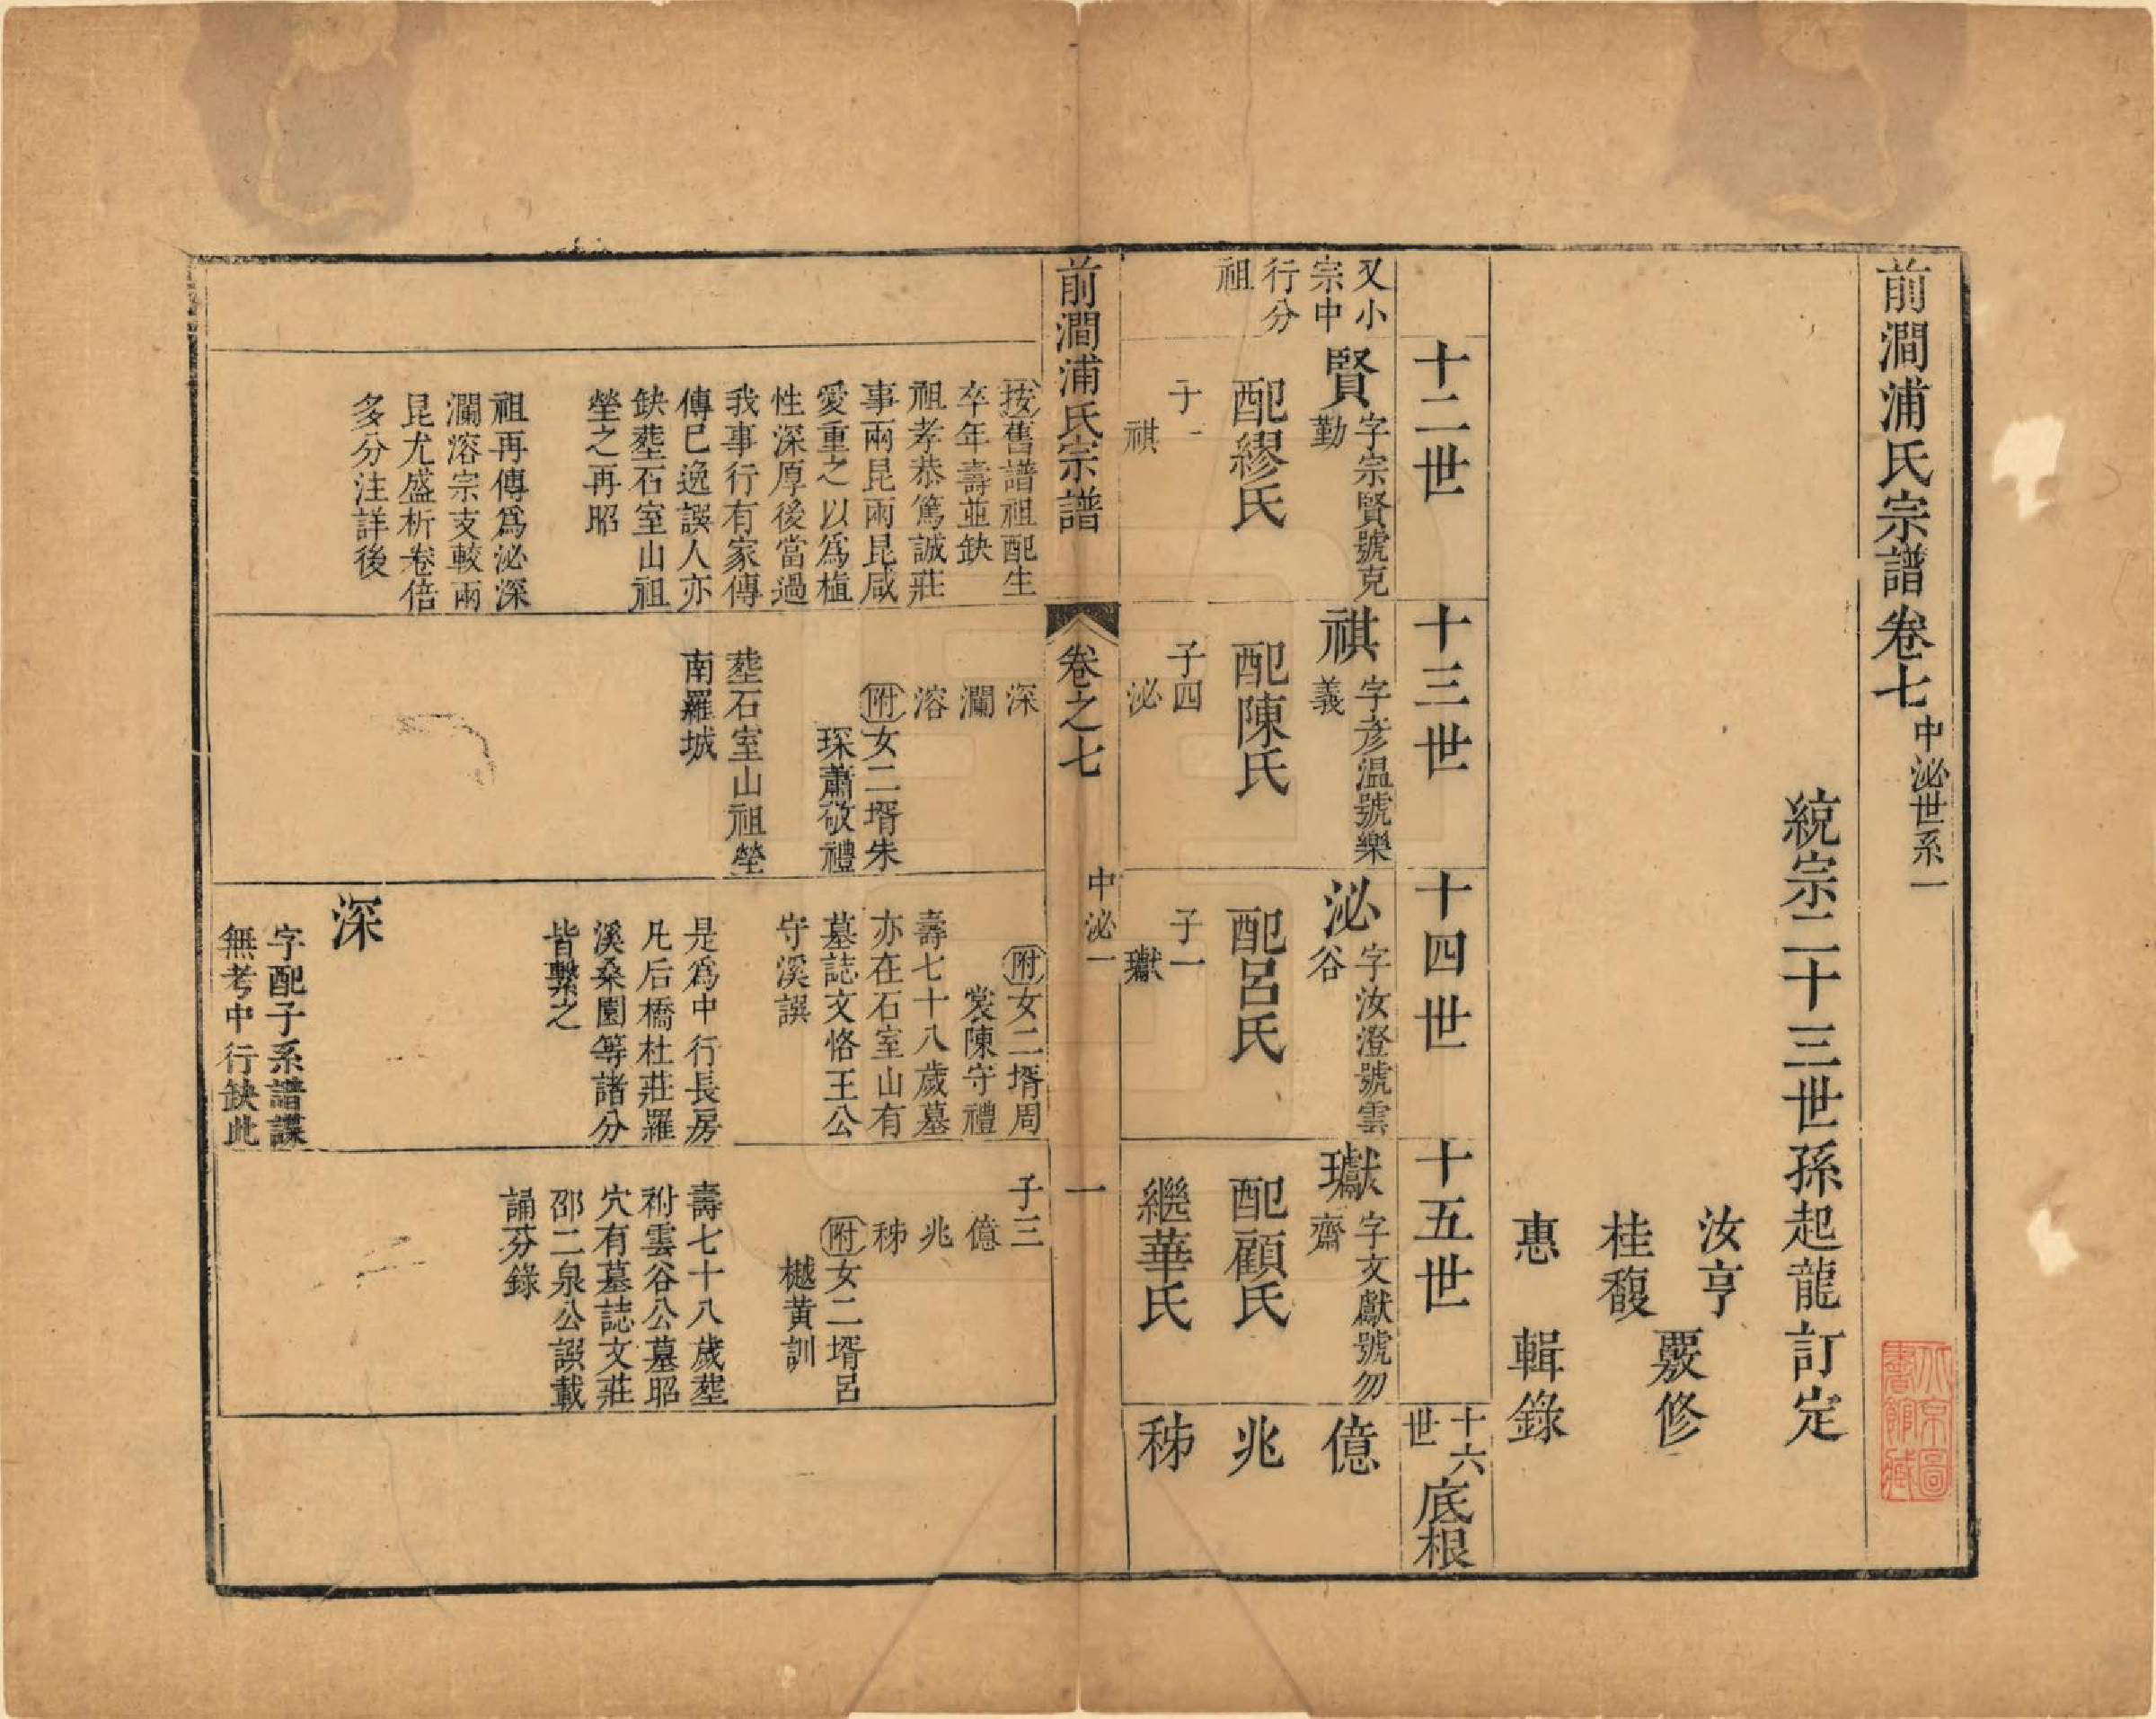 前澗浦氏宗譜卷七 中泌世系一
統宗二十三世孫起龍訂定
汝亨
桂馥
覈修
惠
輯錄
北京圖
書館藏
十二世
十三世
十四世
十五世
十六
世
底根
又小
宗中
行分
祖
賢
字宗賢號克
勤
配繆氏
子一
祺
祺
字彥温號樂
義
配陳氏
子四
泌
泌
字汝澄號雲
谷
配呂氏
子一
瓛
瓛
字文獻號勿
齋
配顧氏
繼華氏
億
兆
秭
前澗浦氏宗譜
卷之七
中泌一
一
按舊譜祖配生
卒年壽並缺
祖孝恭篤誠莊
事兩昆兩昆咸
愛重之以爲植
性深厚後當過
我事行有家傳
傳已逸譔人亦
缺塟石室山祖
塋之再昭
祖再傳爲泌深
瀾溶宗支較兩
昆尤盛析卷倍
多分注詳後
深
瀾
溶
附女二壻朱
琛蕭敬禮
塟石室山祖塋
南羅城
附女二壻周
裳陳守禮
壽七十八歲墓
亦在石室山有
墓誌文恪王公
守溪譔
是爲中行長房
凡后橋杜莊羅
溪桑園等諸分
皆繫之
深
字配子系譜諜
無考中行缺此
子三
億
兆
秭
附女二壻呂
樾黃訓
壽七十八歲塟
祔雲谷公墓昭
穴有墓誌文莊
邵二泉公譔載
誦芬錄